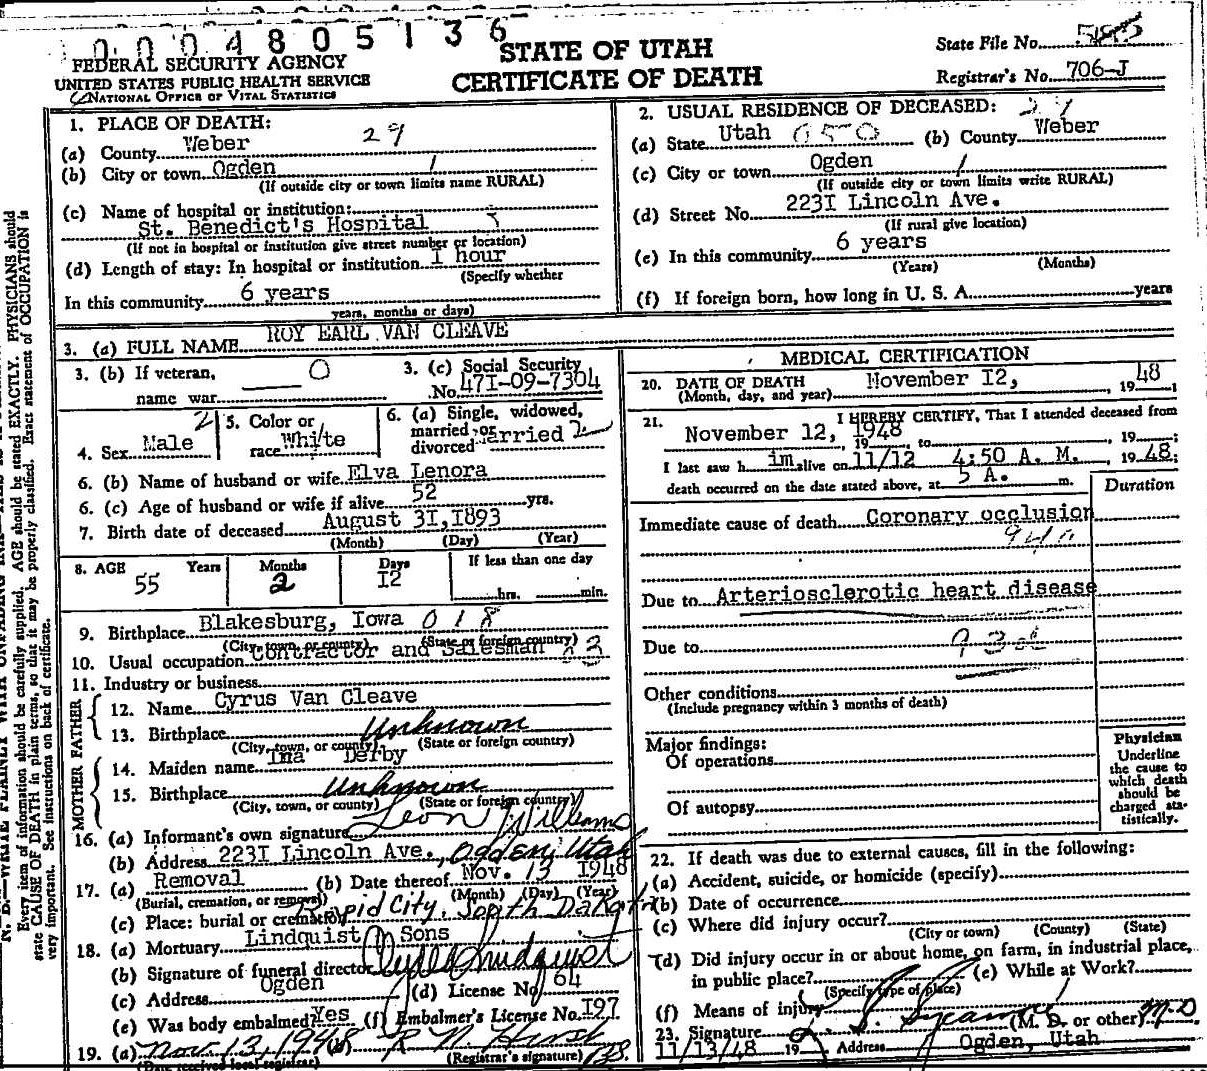 0004805136
FEDERAL SECURITY AGENCY
UNITED STATES PUBLIC HEALTH SERVICE
NATIONAL OFFICE OF VITAL STATISTICS
STATE OF UTAH
CERTIFICATE OF DEATH
State File No.
Registrar's No. 706-J
1. PLACE OF DEATH: 29
(a) County Weber
(b) City or town Ogden 1
(If outside city or town limits name RURAL)
(c) Name of hospital or institution:
St. Benedict's Hospital
(If not in hospital or institution give street number or location)
(d) Length of stay: In hospital or institution I hour
(Specify whether
In this community 6 years
years, months or days)
2. USUAL RESIDENCE OF DECEASED: 29
(a) State Utah 050 (b) County Weber
(c) City or town Ogden 1
(If outside city or town limits write RURAL)
(d) Street No. 223I Lincoln Ave.
(If rural give location)
(e) In this community 6 years
(Years) (Months)
(f) If foreign born, how long in U. S. A. years
3. (a) FULL NAME ROY EARL VAN CLEAVE
3. (b) If veteran, 0
name war
3. (c) Social Security
No. 47I-09-7304
4. Sex Male 2
5. Color or
race White
6. (a) Single, widowed,
married or
divorced Married 2
6. (b) Name of husband or wife Elva Lenora
6. (c) Age of husband or wife if alive 52 yrs.
7. Birth date of deceased August 3I, I893
(Month) (Day) (Year)
8. AGE Years Months Days If less than one day
55 2 I2 hrs. min.
9. Birthplace Blakesburg, Iowa 018
(City, town, or county) (State or foreign country)
10. Usual occupation Contractor and Salesman
11. Industry or business
FATHER
12. Name Cyrus Van Cleave
13. Birthplace Unknown
(City, town, or county) (State or foreign country)
MOTHER
14. Maiden name Ina Derby
15. Birthplace Unknown
(City, town, or county) (State or foreign country)
16. (a) Informant's own signature Leon Williams
(b) Address 223I Lincoln Ave., Ogden, Utah
17. (a) Removal (b) Date thereof Nov. 13 1948
(Burial, cremation, or removal) (Month) (Day) (Year)
(c) Place: burial or cremation Rapid City, South Dakota
18. (a) Mortuary Lindquist & Sons
(b) Signature of funeral director Clyde Lindquist
(c) Address Ogden (d) License No. 64
(e) Was body embalmed? Yes (f) Embalmer's License No. I97
19. (a) Nov 13, 1948 (b) R. N. Hirst
(Date received local registrar) (Registrar's signature)
MEDICAL CERTIFICATION
20. DATE OF DEATH November I2, 1948
(Month, day, and year)
21. I HEREBY CERTIFY, That I attended deceased from
November 12, 1948 19 , to , 19 ;
I last saw h im alive on 11/12 4:50 A. M. , 19 48;
death occurred on the date stated above, at 5 A. m.
Duration
Immediate cause of death Coronary occlusion
Due to Arteriosclerotic heart disease
Due to
Other conditions
(Include pregnancy within 3 months of death)
Major findings:
Of operations
Of autopsy
Physician
Underline
the cause to
which death
should be
charged sta-
tistically.
22. If death was due to external causes, fill in the following:
(a) Accident, suicide, or homicide (specify)
(b) Date of occurrence
(c) Where did injury occur?
(City or town) (County) (State)
(d) Did injury occur in or about home, on farm, in industrial place,
in public place? (e) While at Work?
(Specify type of place)
(f) Means of injury
23. Signature (M. D. or other) M.D
11/13/48 19 Address Ogden, Utah
Every item of information should be carefully supplied. AGE should be stated EXACTLY. PHYSICIANS should
state CAUSE OF DEATH in plain terms, so that it may be properly classified. Exact statement of OCCUPATION is
very important. See instructions on back of certificate.